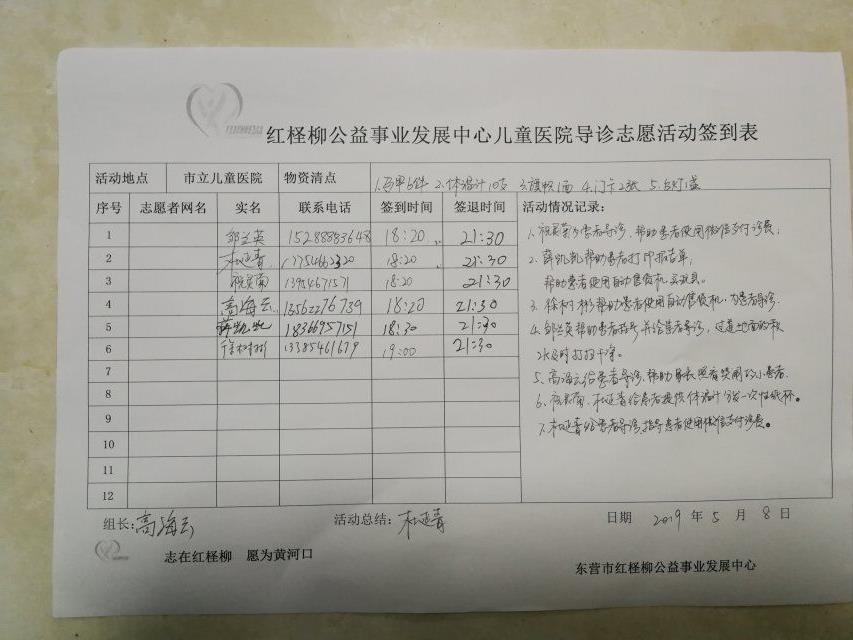 红柽柳公益事业发展中心儿童医院导诊志愿活动签到表
活动地点 市立儿童医院 物资清点 1.马甲6件 2.体温计10支 3.旗帜1面 4.门卡2张 5.台灯1盏
序号 志愿者网名 实名 联系电话 签到时间 签退时间 活动情况记录:
1 邹兰英 15288883648 18:20 21:30
2 杜延青 18:20 21:30
3 13954671571 18:20 21:30
4 高海云 13562276739 18:20 21:30
5 薛凯凯 18366957151 18:20 21:30
6 徐树彬 13385461679 19:00 21:30
7
8
9
10
11
12
患者导诊,帮助患者使用微信支付诊费。
2.薛凯凯帮助患者打印报告单,
帮助患者使用自动售货机买玩具。
3.徐树彬帮助患者使用自动售货机,为患者导诊.
4.邹兰英帮助患者挂号并给患者导诊,过道地面的积
水及时打扫干净。
5.高海云给患者导诊,帮助家长照看哭闹的小患者.
6. 杜延青给患者提供体温计 一次性纸杯。
7.杜延青给患者导诊,指导患者使用微信支付诊费。
组长:高海云 活动总结:杜延青 日期 2019 年 5 月 8 日
志在红柽柳 愿为黄河口
东营市红柽柳公益事业发展中心